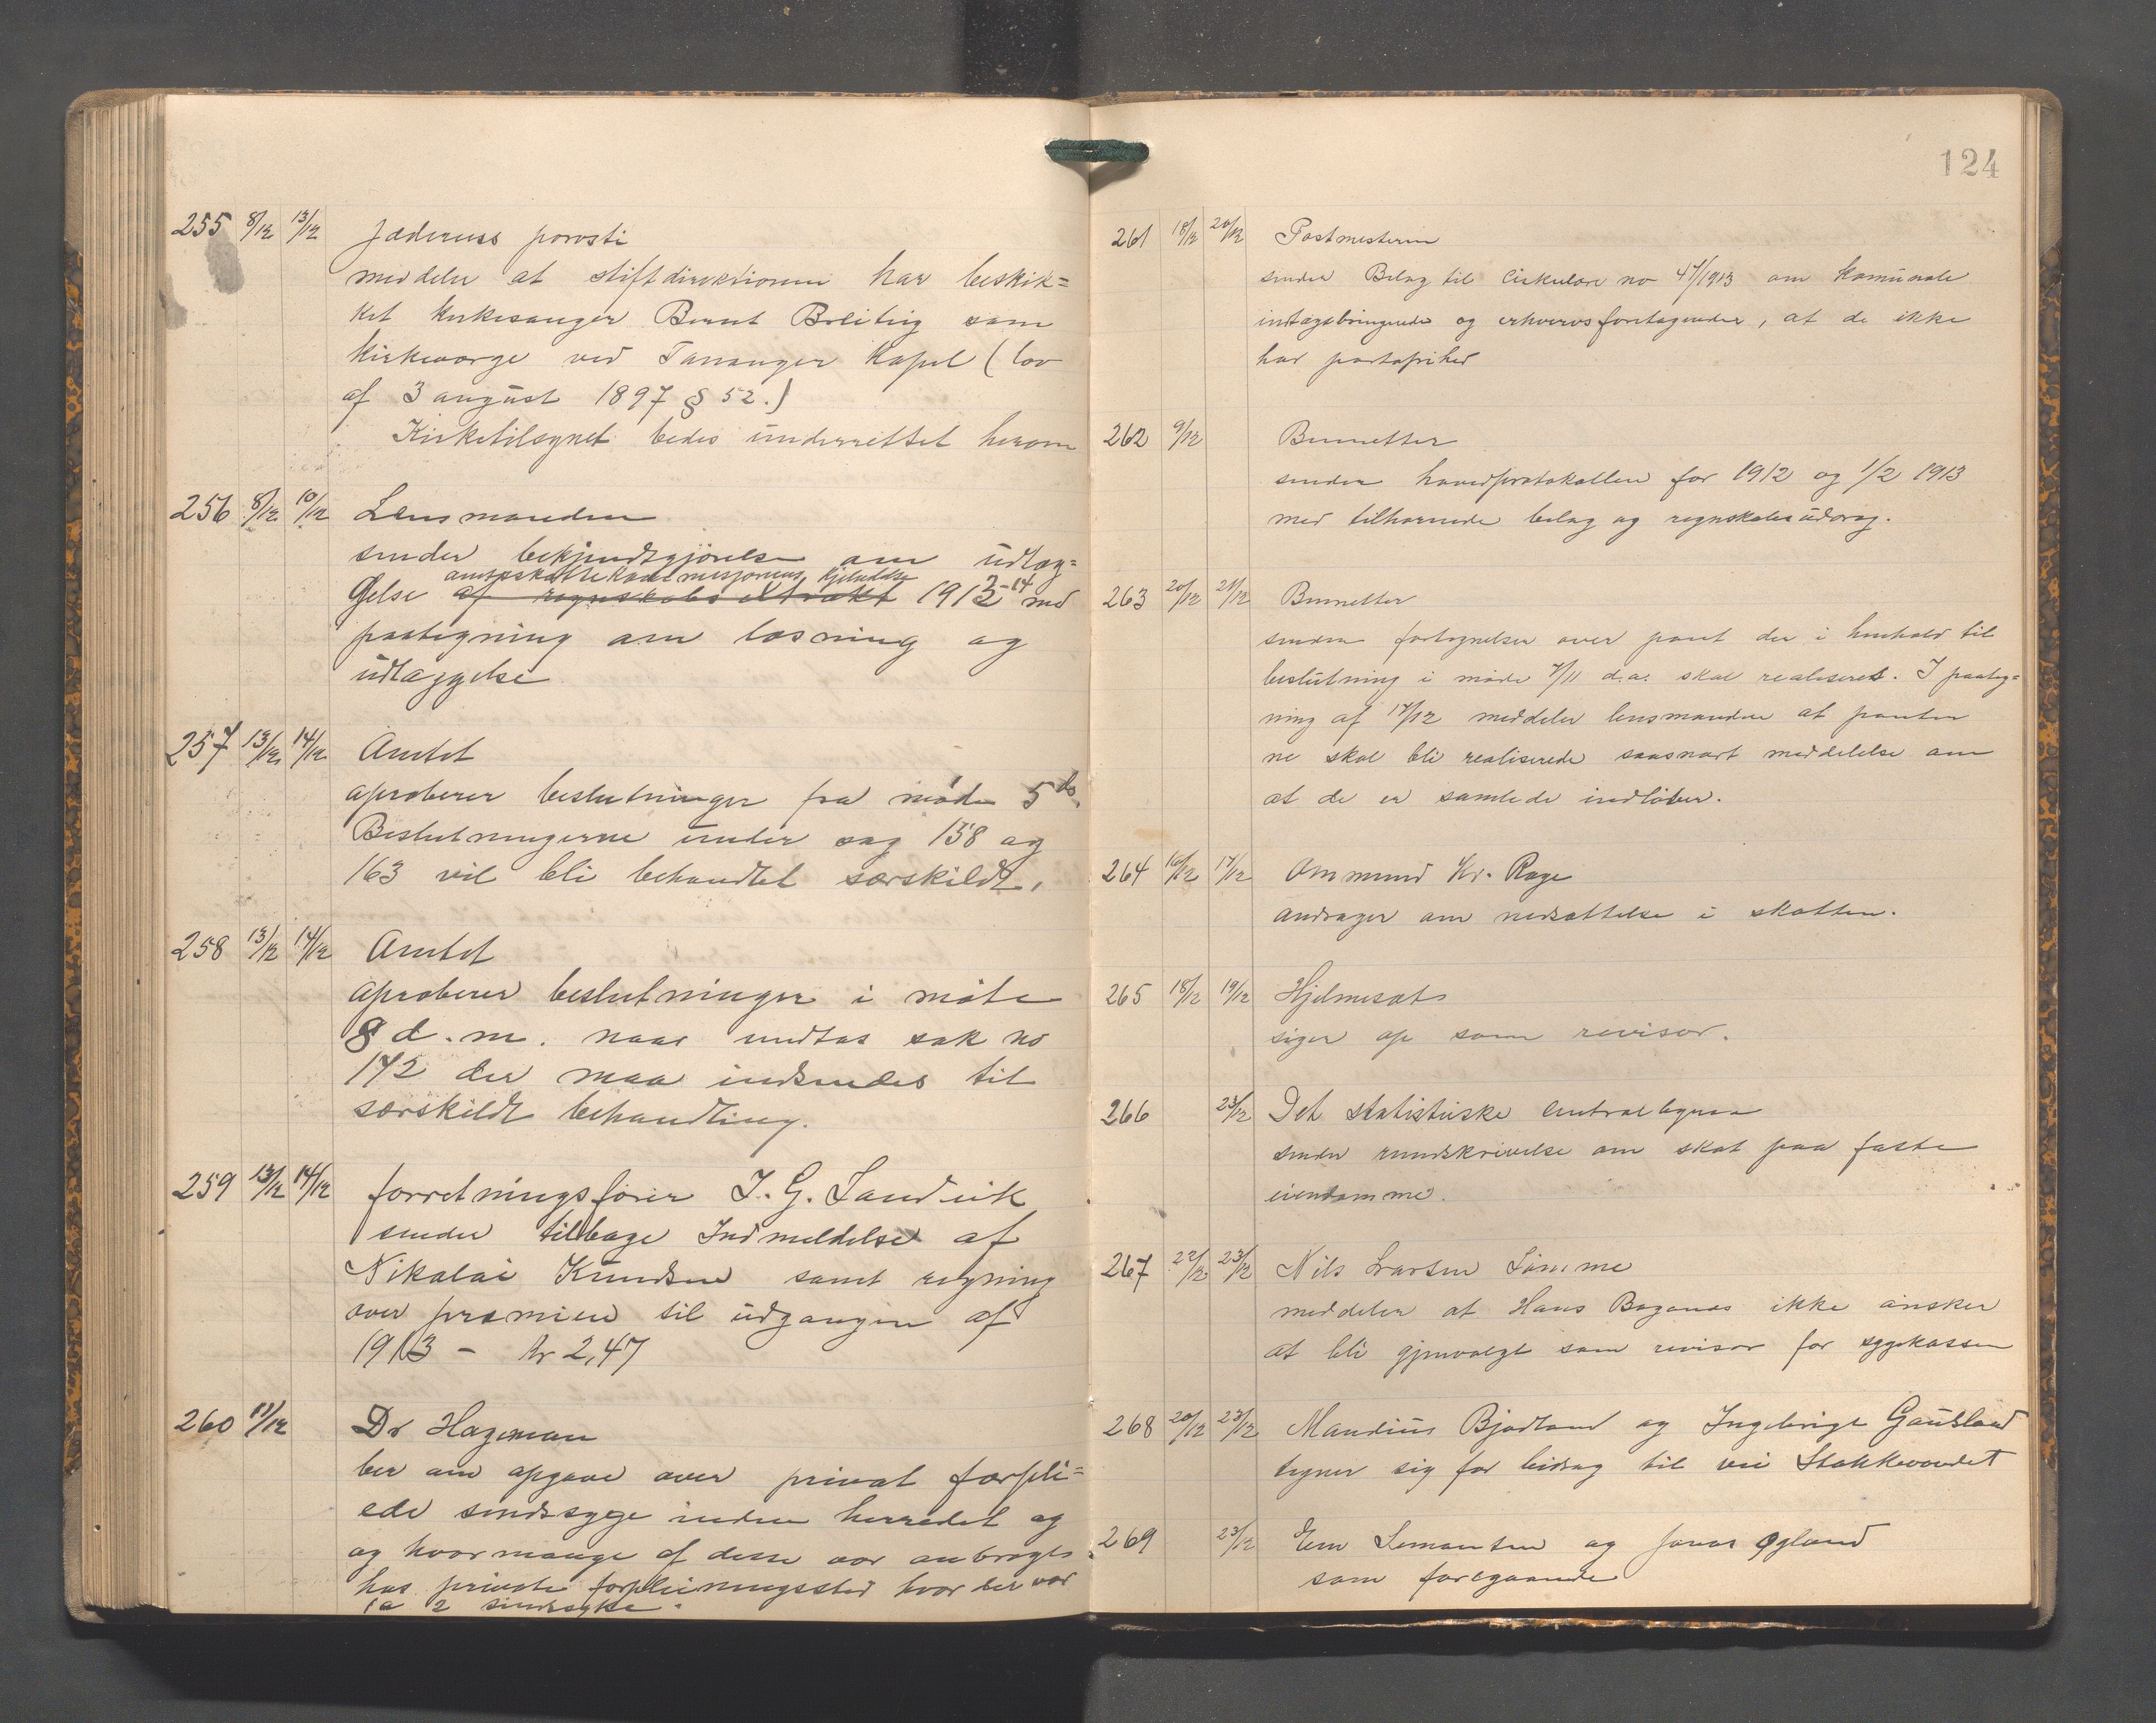 255 8/12 13/12 Jæderens provsti
meddeler at stiftdirektionen har beskik=
ket kirkesanger Bernt
som
kirkeværge ved Tananger Kapel (lov
af 3 august 1897 § 52.)
Kirketilsynet bedes underrettet herom
256 8/12 10/12 Lensmanden
sender bekjendtgjörelse om udlæg=
amtsskattekommisjonens kjendelse
gelse af regnskabsextrakt 1913-14 med
paategning om læsning og
udlæggelse
257 13/12 14/12 Amtet
aproberer beslutninger fra møde 5 ds.
Beslutningerne under sag 158 og
163 vil bli behandlet særskildt.
258 13/12 14/12 Amtet
aproberer beslutninger i møte
8 d.m. naar undtas sak no
172 der maa indsendes til
særskildt behandling.
259 13/12 14/12 forretningsfører J. G. Sandvik
sender tilbage Indmeldelse af
Nikolai Knudsen samt regning
over præmien til udgangen af
1913 - Kr 2,47
260 11/12 Dr Hageman
ber om opgave over privat forplei=
ede sindssyge inden herredet og
og hvor mange af disse var anbragte
hos private forpleiningssted hvor der var
1 a 2 sindssyke.
124
261 18/12 20/12 Postmesteren
sender Bilag til Cirkulære no 47/1913 om komunale
indtægsbringende og erhvervsforetagender, at de ikke
har portofrihed
262 9/12 Brunetter
sender hovedprotokollen for 1912 og 1/2 1913
med tilhørende bilag og regnskabsudrag.
263 20/12 21/12 Brunetter
sender fortegnelser over pant der i henhold til
beslutning i møde 7/11 d.a. skal realiseres. I paateg=
ning af 17/12 meddeler lensmanden at panter
ne skal bli realiserede saasnart meddelelse om
at de er samlede indløber.
264 16/12 17/12 Ommund Kr. Rage
andrager om nedsættelse i skatten.
265 18/12 19/12 Hjelmesæt
siger op som revisor.
266 23/12 Det statistiske Centralbyraa
sender rundskrivelse om skat paa faste
eiendomme.
267 22/12 23/12 Nils Larsen Sömme
meddeler at Hans
ikke ønsker
at bli gjenvalgt som revisor for sygekassen
268 20/12 23/12 Maudius Bjødland og Ingebrigt Gausland
tegner sig for bidrag til vei Stokkevandet
269 23/12
og Jonas Øgland
som foregaaende